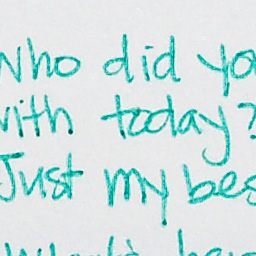 Who did yo
with today?
Just my bes